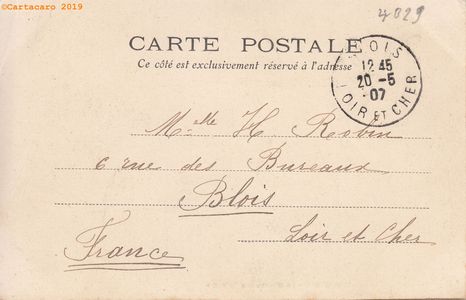 ©Cartacaro 2019
4029
CARTE POSTALE
Ce côté est exclusivement réservé à l'adresse
BLOIS
12 45
20 -5
07
LOIR ET CHER
Mlle H. Robin
6 rue des Bureaux
Blois
Loir et Cher
France